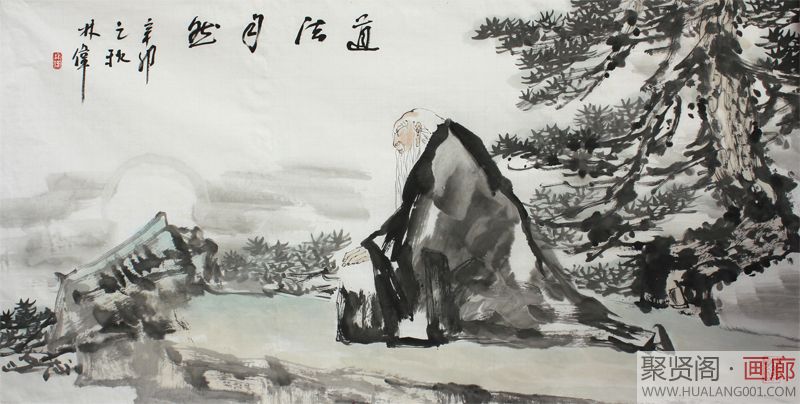 道法自然
辛卯
之秋
林伟
聚贤阁·画廊
WWW.HUALANG001.COM